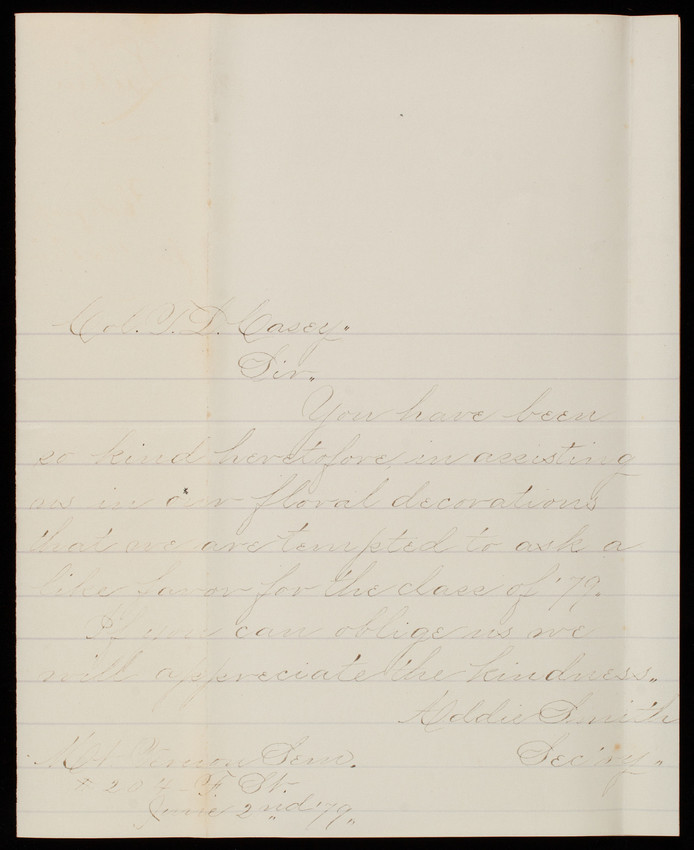 Col. T. D. Casey"
Sir"
You have been
so kind heretofore, in assisting
us in our floral decorations
that we are tempted to ask a
like favor for the class of '79.
If you can oblige us we
will appreciate the kindness"
Addie Smith
Sec'ry"
Mt Vernon Sem.
204 F. St.
June 2nd '79"